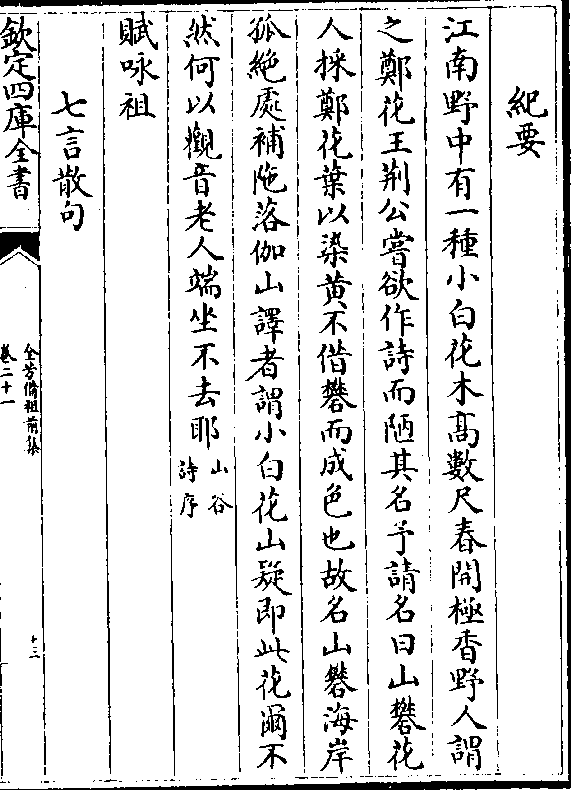 紀要
江南野中有一種小白花木髙數尺春開極香野人謂
之鄭花王荆公嘗欲作詩而陋其名予請名曰山礬花
人採鄭花葉以染黄不借礬而成色也故名山礬海岸
孤絶處補陁落伽山譯者謂小白花山疑即此花爾不
然何以觀音老人端坐不去耶山谷詩序
賦咏祖
七言散句
欽定四庫全書
全芳備祖前集
卷二十一
十三